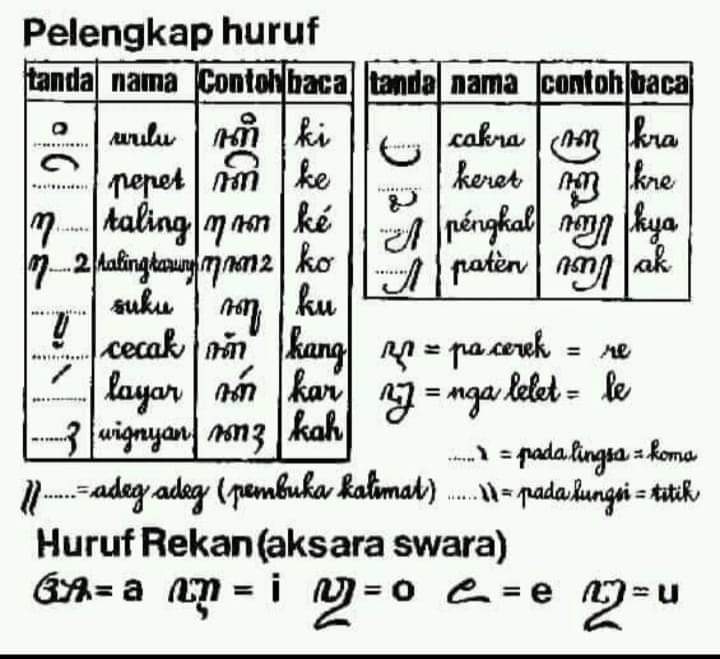 Pelengkap huruf
tanda nama Contoh baca
ꦶ wulu ꦏꦶ ki
ꦼ pepet ꦏꦼ ke
ꦺ taling ꦏꦺ ké
ꦺ....ꦴ talingtarung ꦏꦺꦴ ko
ꦸ suku ꦏꦸ ku
ꦁ cecak ꦏꦁ kang
ꦂ layar ꦏꦂ kar
ꦃ wignyan ꦏꦃ kah
tanda nama contoh baca
ꦿ cakra ꦏꦿ kra
ꦽ keret ꦏꦽ kre
ꦾ péngkal ꦏꦾ kya
꧀ patèn ꦏ꧀ ak
ꦉ = pa cerek = re
ꦊ = nga lelet = le
.....꧈ = pada lingsa = koma
꧋......= adeg adeg (pembuka kalimat) ......꧉ = pada lungsi = titik
Huruf Rekan (aksara swara)
ꦄ = a ꦆ = i ꦎ = o ꦌ = e ꦈ = u